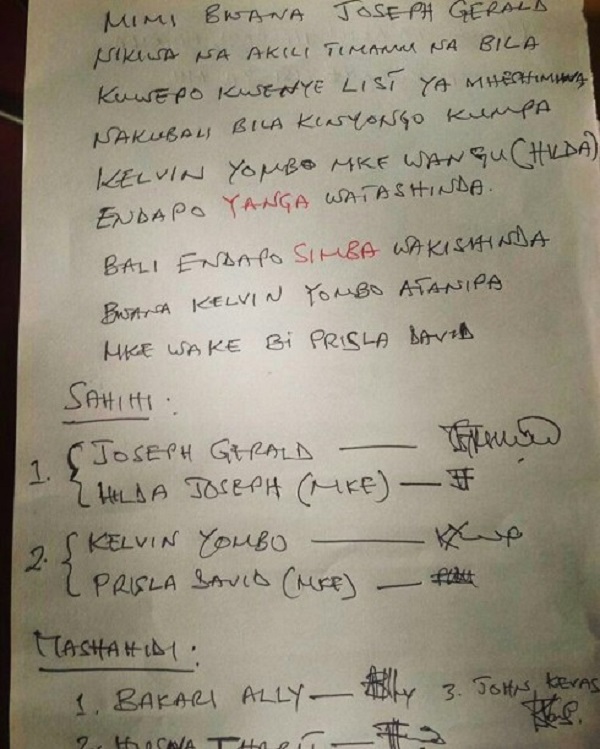 MIMI BWANA JOSEPH GERALD
NIKIWA NA AKILI TIMAMU NA BILA
KUWEPO KWENYE LIST YA MHESHIMIWA
NAKUBALI BILA KINYONGO KUMPA
KELVIN YOMBO MKE WANGU (HILDA)
ENDAPO YANGA WATASHINDA.
BALI ENDAPO SIMBA WAKISHINDA
BWANA KELVIN YOMBO ATANIPA
MKE WAKE Bi PRISLA DAVID
SAHIHI:
1. JOSEPH GERALD
HILDA JOSEPH (MKE)
2. KELVIN YOMBO
PRISLA DAVID (MKE)
MASHAHIDI:
1. BAKARI ALLY 3. JOHN KEVAS
2.